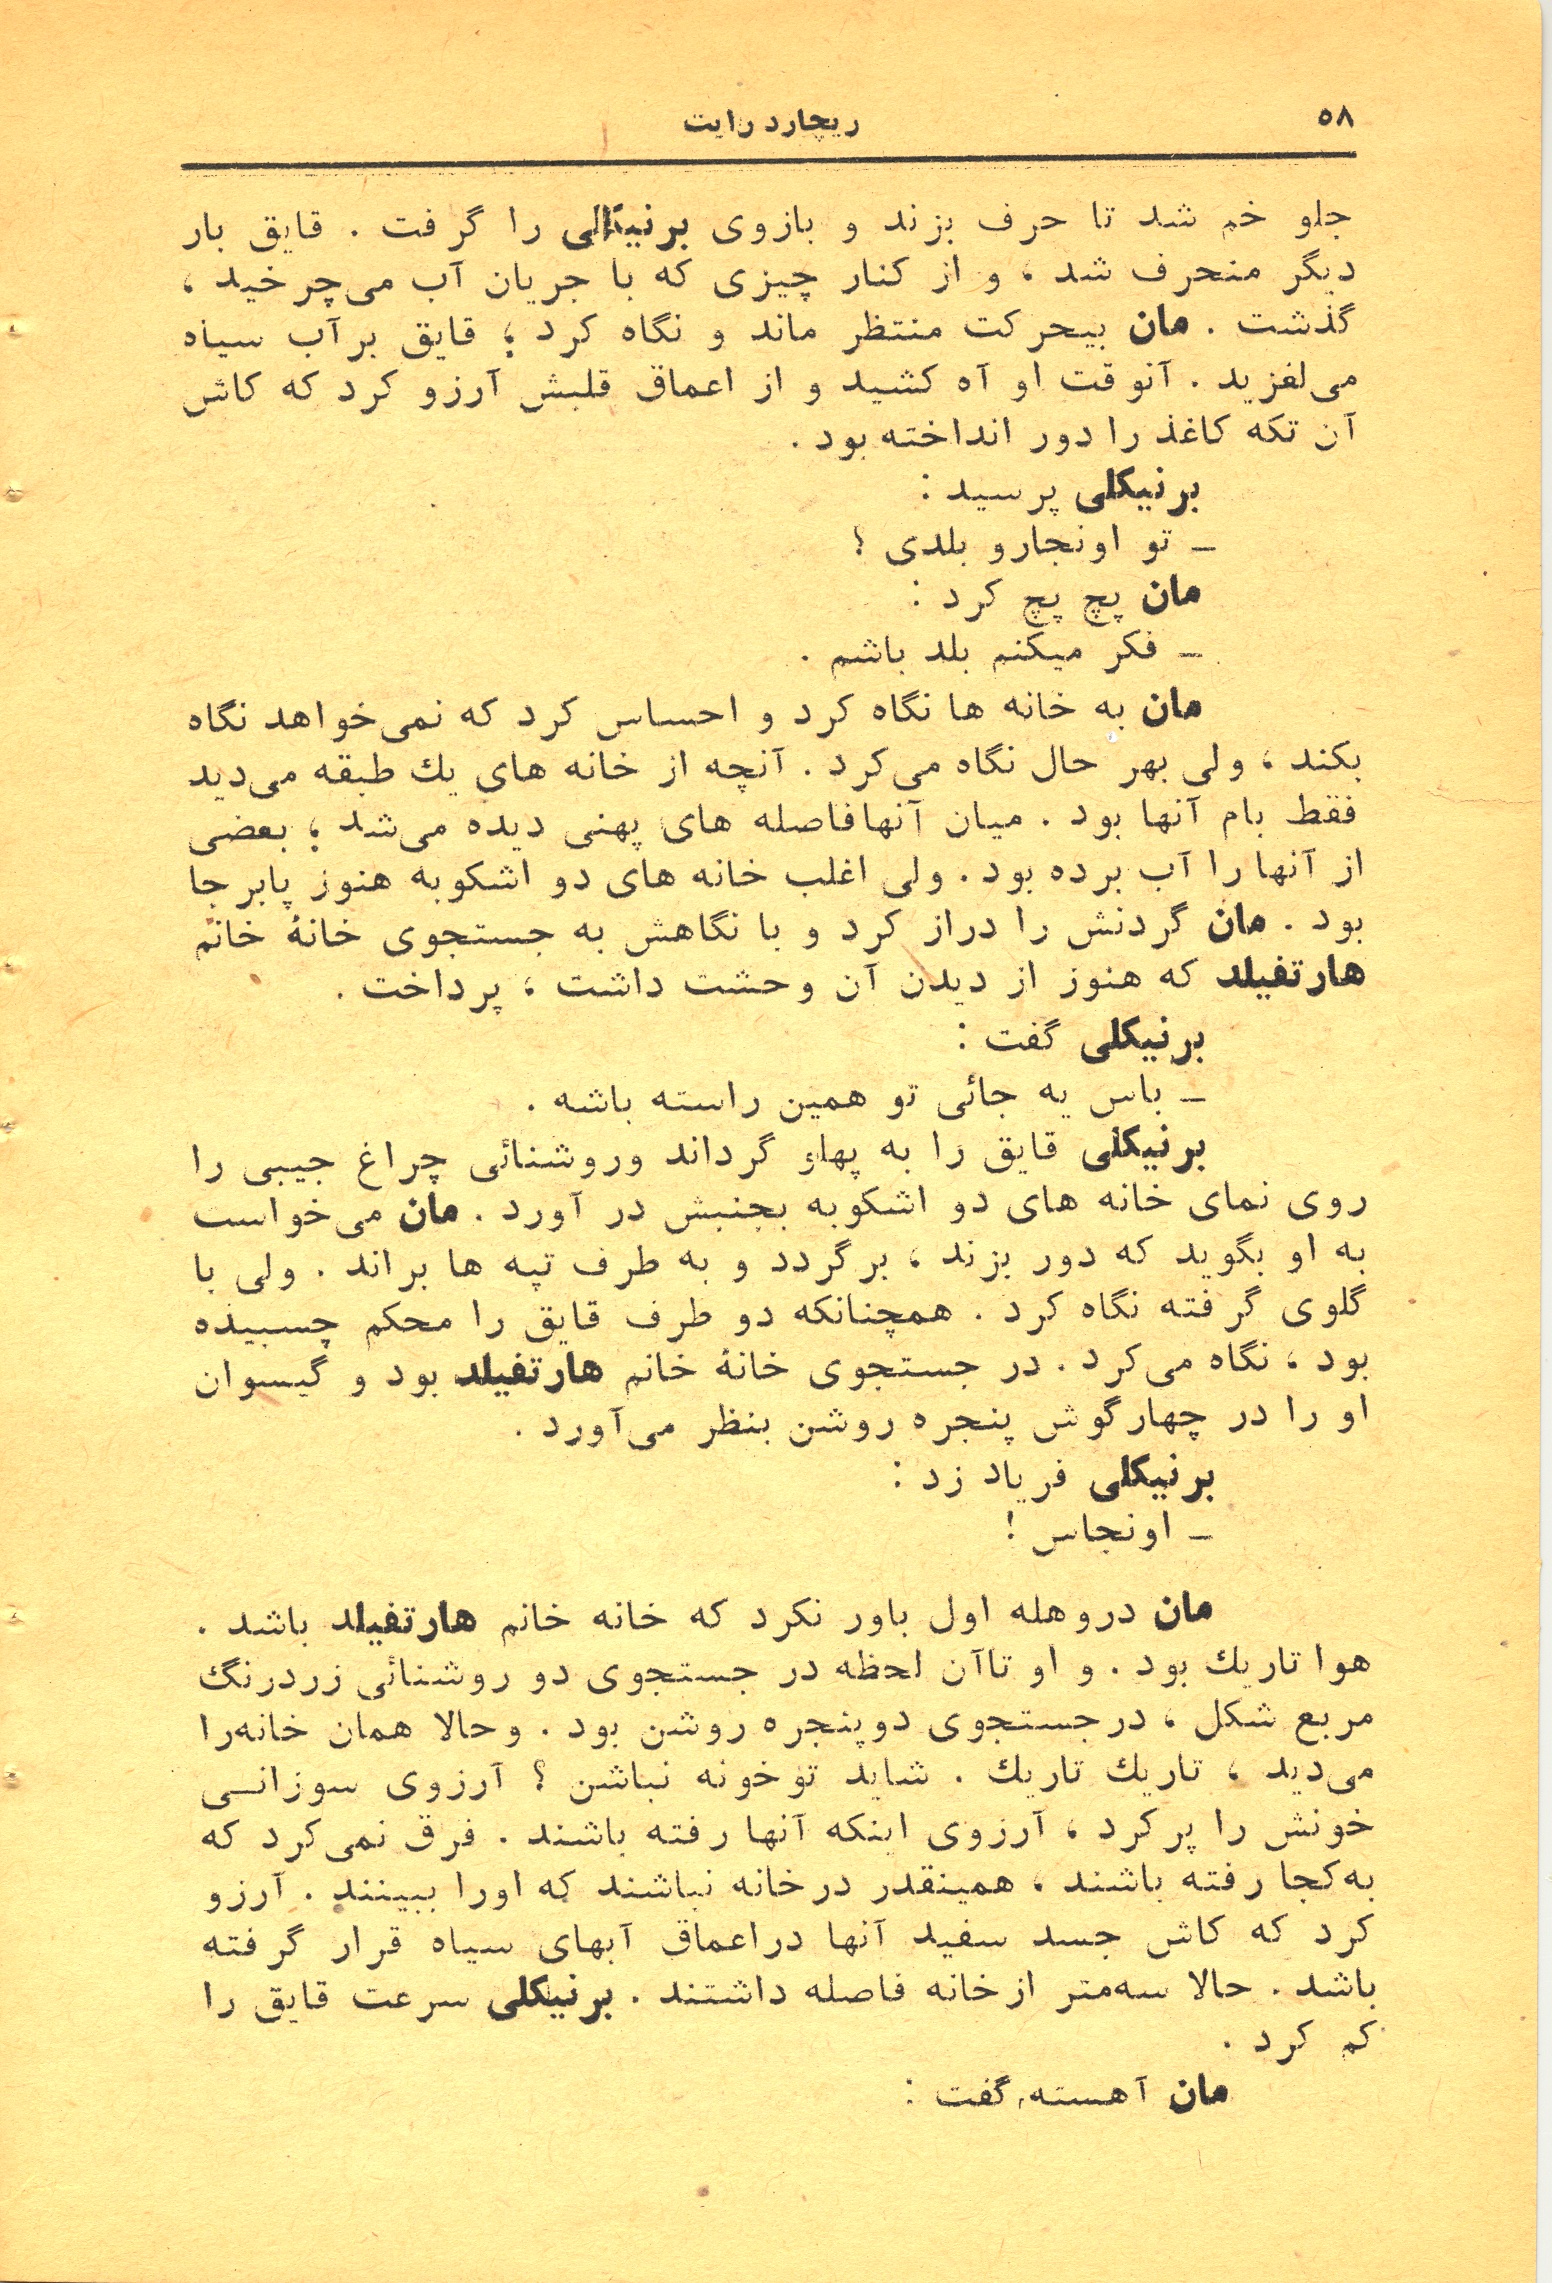 ۵۸
ریچارد رایت
جلو خم شد تا حرف بزند و بازوی برنیکلی را گرفت . قایق بار
دیگر منحرف شد ، و از کنار چیزی که با جریان آب می‌چرخید ،
گذشت . مان بیحرکت منتظر ماند و نگاه کرد ؛ قایق برآب سیاه
می‌لغزید . آنوقت او آه کشید و از اعماق قلبش آرزو کرد که کاش
آن تکه کاغذ را دور انداخته بود .
برنیکلی پرسید :
ـ تو اونجارو بلدی ؟
مان پچ پچ کرد :
ـ فکر میکنم بلد باشم .
مان به خانه ها نگاه کرد و احساس کرد که نمی‌خواهد نگاه
بکند ، ولی بهر حال نگاه می‌کرد . آنچه از خانه های یك طبقه می‌دید
فقط بام آنها بود . میان آنها فاصله های پهنی دیده می‌شد ؛ بعضی
از آنها را آب برده بود . ولی اغلب خانه های دو اشکوبه هنوز پابرجا
بود . مان گردنش را دراز کرد و با نگاهش به جستجوی خانهٔ خانم
هارتفیلد که هنوز از دیدن آن وحشت داشت ، پرداخت .
برنیکلی گفت :
ـ باس یه جائی تو همین راسته باشه .
برنیکلی قایق را به پهلو گرداند وروشنائی چراغ جیبی را
روی نمای خانه های دو اشکوبه بجنبش در آورد . مان می‌خواست
به او بگوید که دور بزند ، برگردد و به طرف تپه ها براند . ولی با
گلوی گرفته نگاه کرد . همچنانکه دو طرف قایق را محکم چسبیده
بود ، نگاه می‌کرد . در جستجوی خانهٔ خانم هارتفیلد بود و گیسوان
او را در چهارگوش پنجره روشن بنظر می‌آورد .
برنیکلی فریاد زد :
ـ اونجاس !
مان دروهله اول باور نکرد که خانه خانم هارتفیلد باشد .
هوا تاریك بود . و او تاآن لحظه در جستجوی دو روشنائی زردرنگ
مربع شکل ، درجستجوی دوپنجره روشن بود . وحالا همان خانه‌را
می‌دید ، تاریك تاریك . شاید توخونه نباشن ؟ آرزوی سوزانـی
خونش را پرکرد ، آرزوی اینکه آنها رفته باشند . فرق نمی‌کرد که
به‌کجا رفته باشند ، همینقدر درخانه نباشند که اورا ببینند . آرزو
کرد که کاش جسد سفید آنها دراعماق آبهای سیاه قرار گرفته
باشد . حالا سه‌متر ازخانه فاصله داشتند . برنیکلی سرعت قایق را
کم کرد .
مان آهسته گفت :